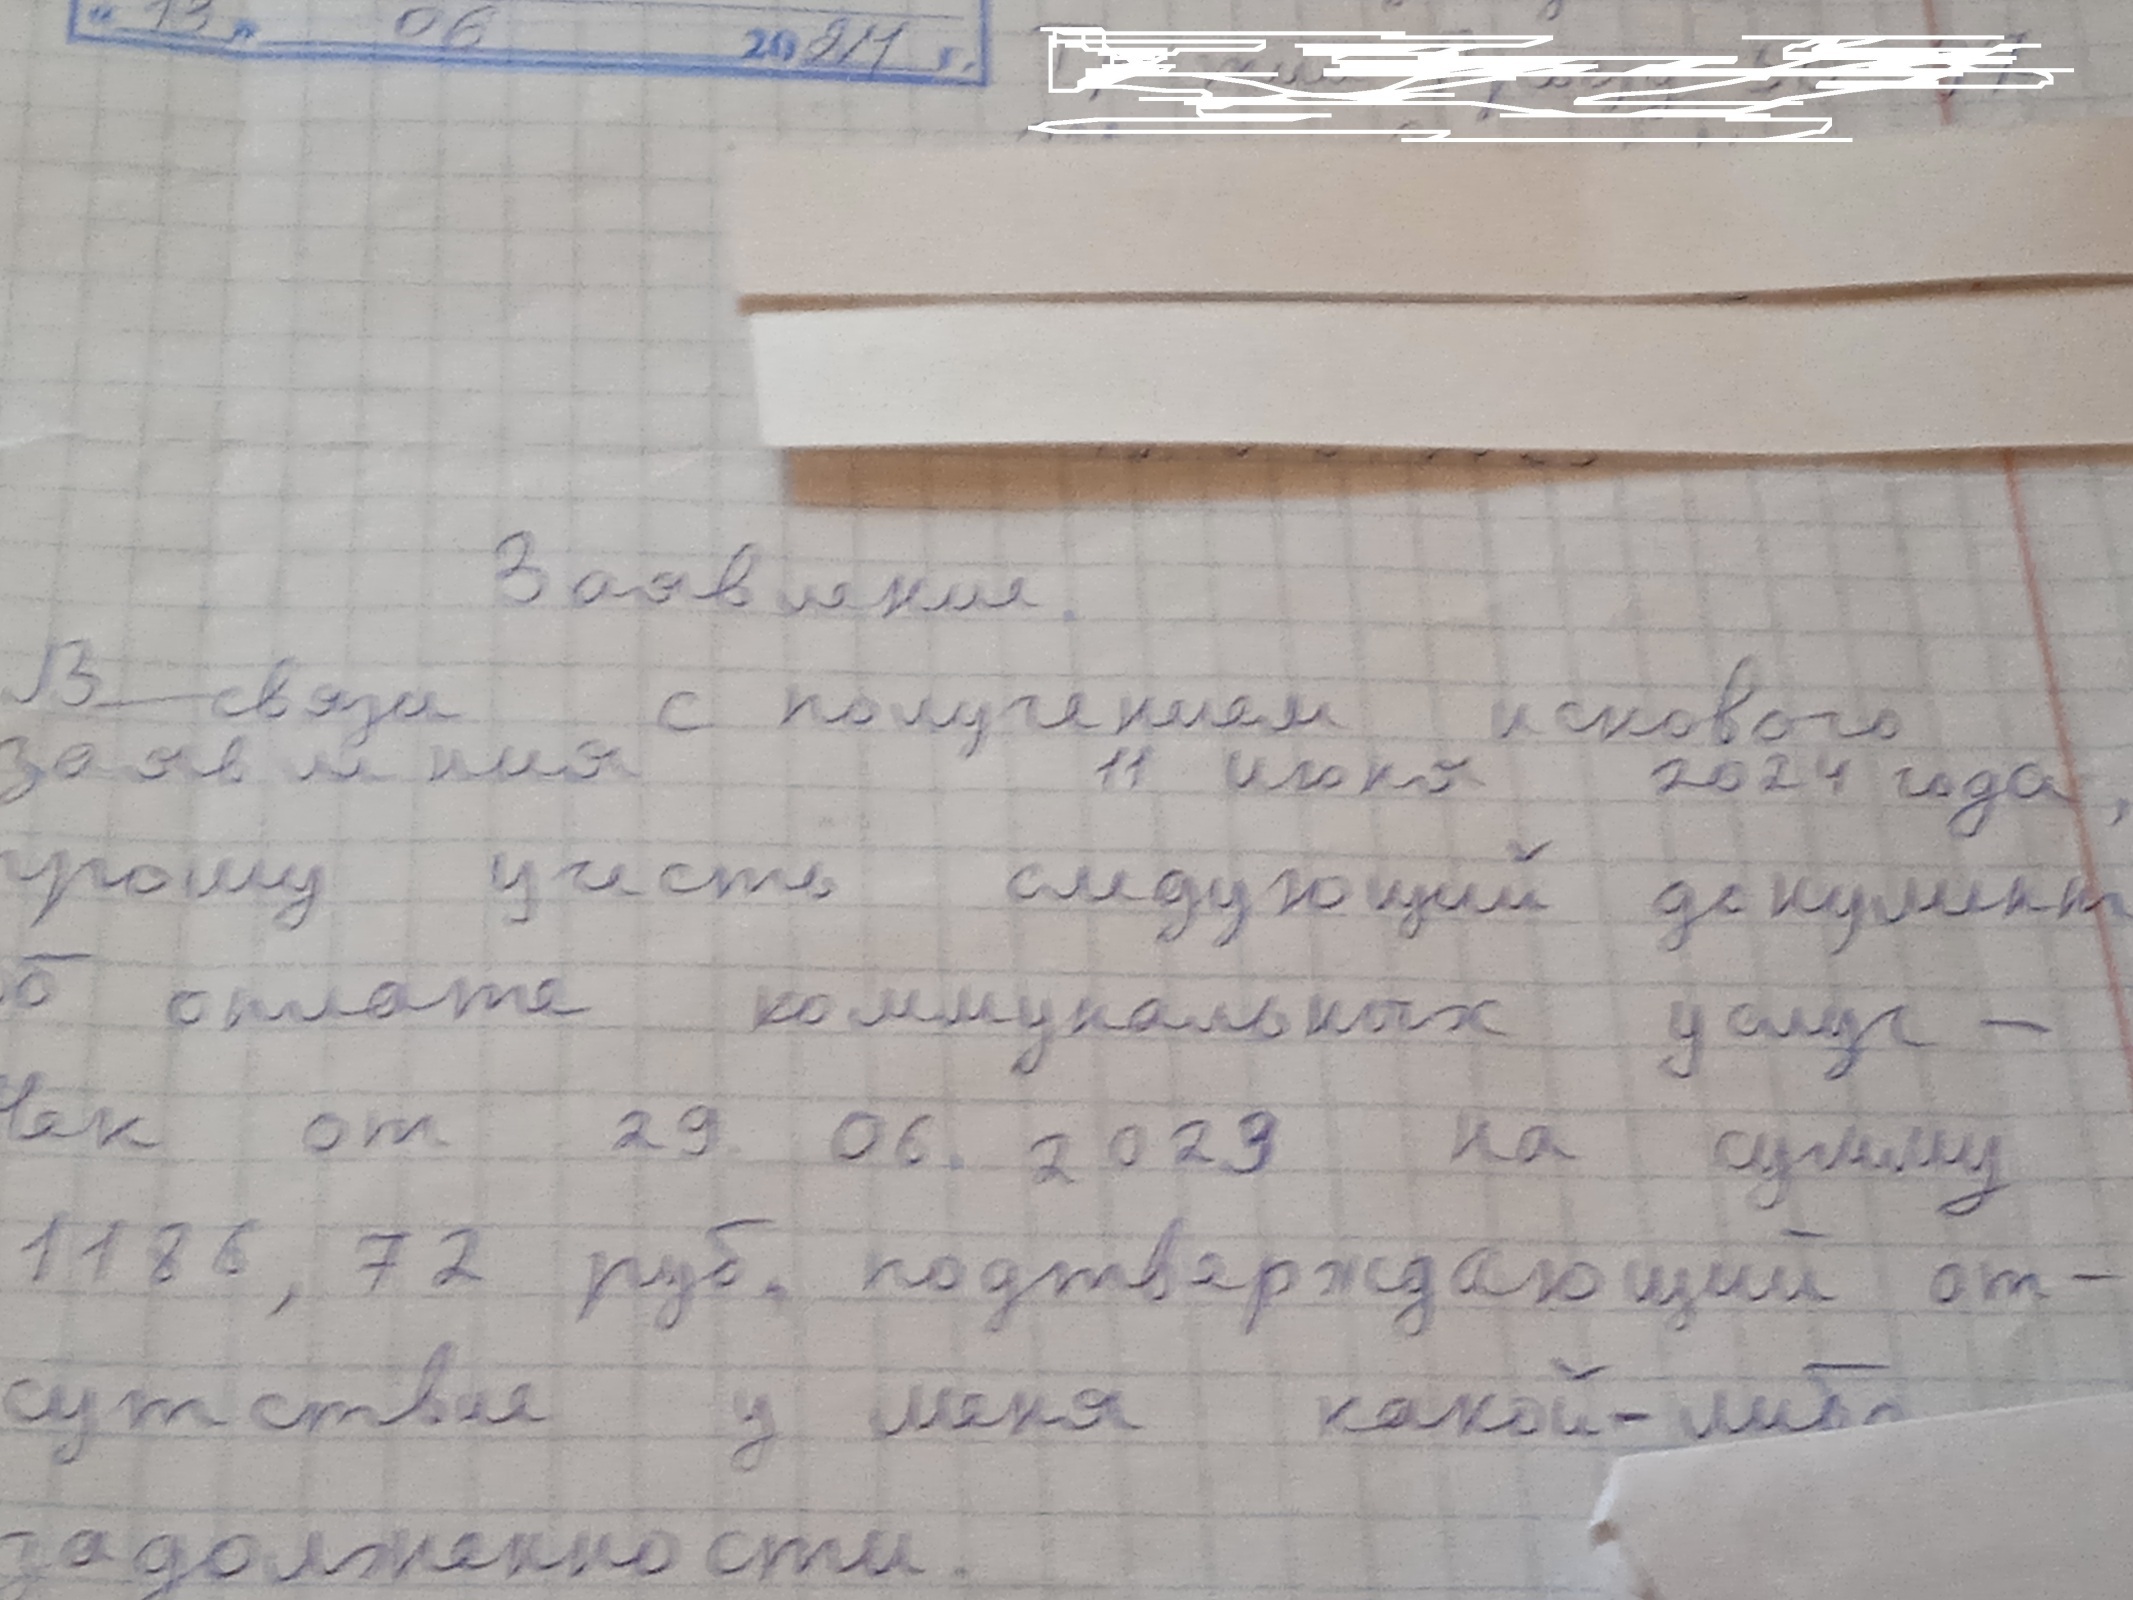 "13" 06 2024 г.
Заявление.
В связи с получением искового
заявления 11 июня 2024 года,
прошу учесть следующий документ
об оплате коммунальных услуг -
Чек от 29.06.2023 на сумму
1186,72 руб. подтверждающий от-
сутствие у меня какой-либо
задолженности.